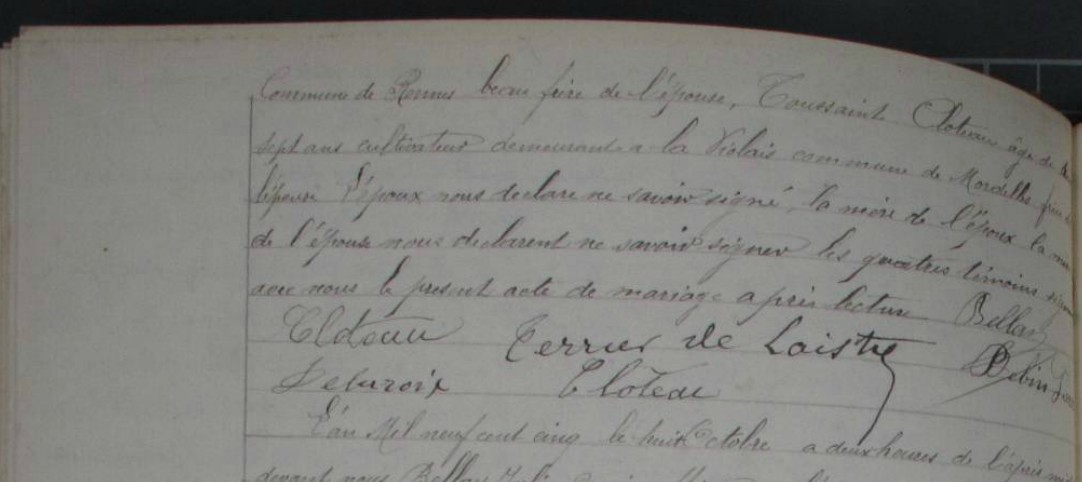 Commune de Rennes beau frère de l'épouse, Toussaint Cloteau âgé de
sept ans cultivateur demeurant a la Violais commune de Mordelles frère
l'épouse L'époux nous declare ne savoir signé, la mère de l'époux la
de l'épouse nous declarent ne savoir signer les quatres témoins
avec nous le present acte de mariage apris lecture Bellay
Cloteau Terrier de Laistre
Delaroix Cloteau
L'an Mil neuf cent cinq le huit Octobre a deux heures de l'après
devant nous Bellay